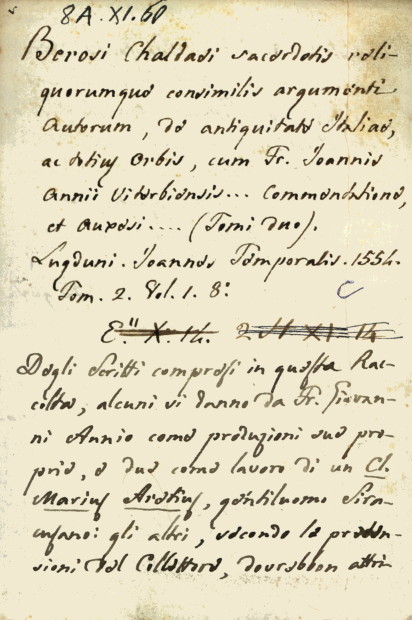 8A.XI.60
Berosi Chaldaei sacerdotis reli-
quorumque consimilis argumenti
Autorum, de antiquitate Italiae,
ac totius Orbis, cum Fr. Joannis
Annii Viterbiensis... Commentatione,
et Auxesi.... (Tomi duo).
Lugduni. Joannes Temporalis. 1554.
Tom. 2. Vol. 1. 8:
C
E." X. 14.
Degli Scritti compresi in questa Rac-
colta, alcuni si danno da Fr. Giovan-
ni Annio come produzioni sue pro-
prie, e due come lavoro di un Cl.
Marius Aretius, gentiluomo Sira-
cusano: gli altri, secondo le preten-
sioni del Collettore, dovrebbon attri-